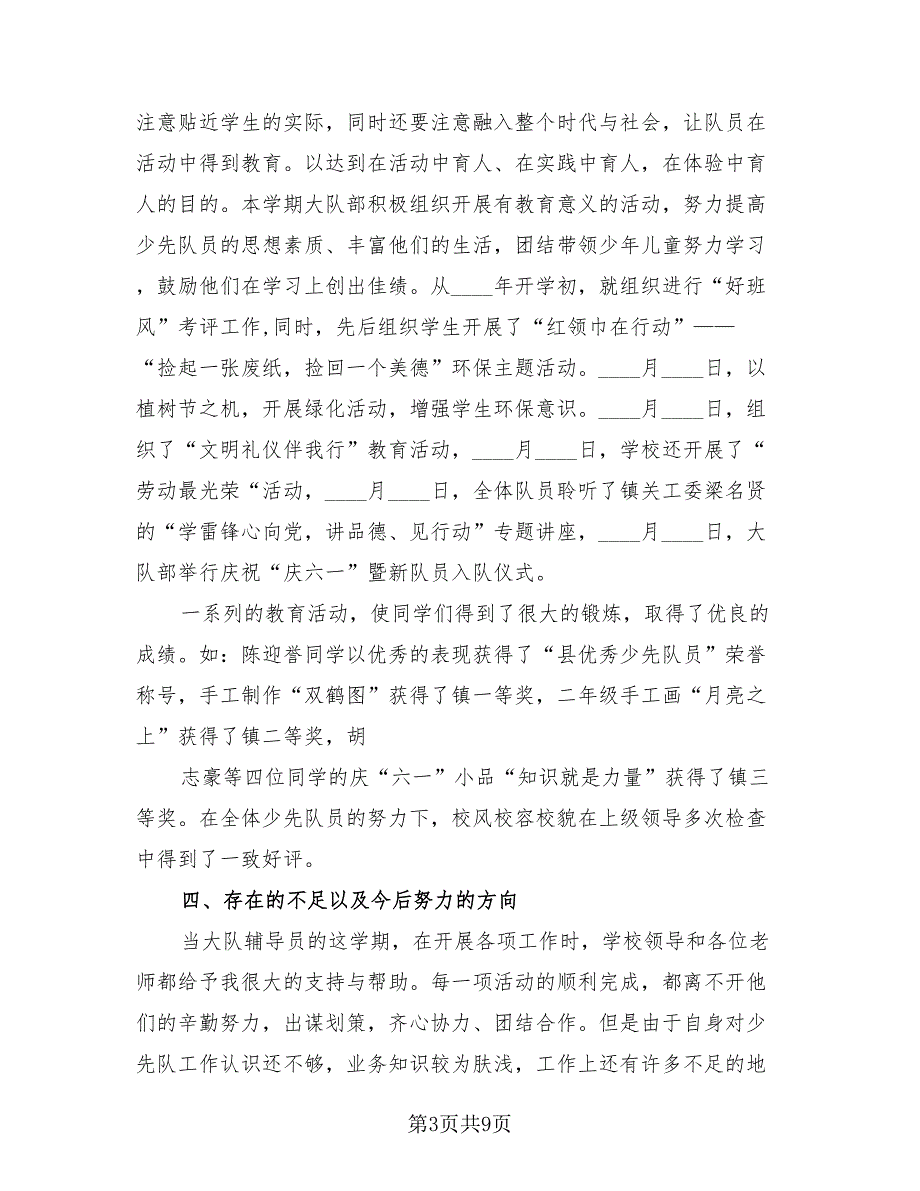 注意贴近学生的实际，同时还要注意融入整个时代与社会，让队员在
活动中得到教育。以达到在活动中育人、在实践中育人，在体验中育
人的目的。本学期大队部积极组织开展有教育意义的活动，努力提高
少先队员的思想素质、丰富他们的生活，团结带领少年儿童努力学习
，鼓励他们在学习上创出佳绩。从____年开学初，就组织进行“好班
风”考评工作,同时，先后组织学生开展了“红领巾在行动”——
“捡起一张废纸，捡回一个美德”环保主题活动。____月____日，以
植树节之机，开展绿化活动，增强学生环保意识。____月____日，组
织了“文明礼仪伴我行”教育活动，____月____日，学校还开展了“
劳动最光荣“活动，____月____日，全体队员聆听了镇关工委梁名贤
的“学雷锋心向党，讲品德、见行动”专题讲座，____月____日，大
队部举行庆祝“庆六一”暨新队员入队仪式。
一系列的教育活动，使同学们得到了很大的锻炼，取得了优良的
成绩。如：陈迎誉同学以优秀的表现获得了“县优秀少先队员”荣誉
称号，手工制作“双鹤图”获得了镇一等奖，二年级手工画“月亮之
上”获得了镇二等奖，胡
志豪等四位同学的庆“六一”小品“知识就是力量”获得了镇三
等奖。在全体少先队员的努力下，校风校容校貌在上级领导多次检查
中得到了一致好评。
四、存在的不足以及今后努力的方向
当大队辅导员的这学期，在开展各项工作时，学校领导和各位老
师都给予我很大的支持与帮助。每一项活动的顺利完成，都离不开他
们的辛勤努力，出谋划策，齐心协力、团结合作。但是由于自身对少
先队工作认识还不够，业务知识较为肤浅，工作上还有许多不足的地
第3页共9页